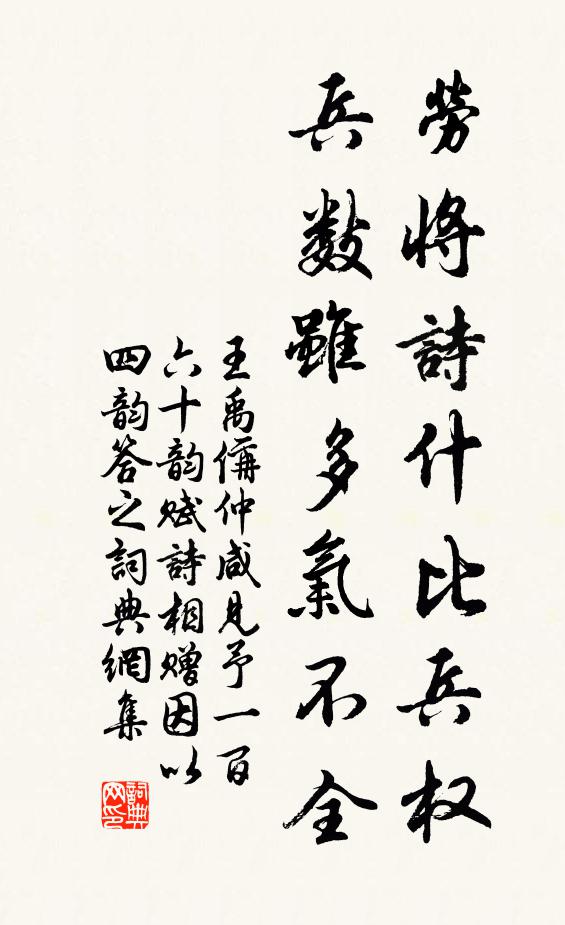 勞將詩什比兵权
兵数雖多氣不全
王禹偁仲咸見予一百
六十韵赋詩相赠因以
四韵答之詞典網集
詞典
网印